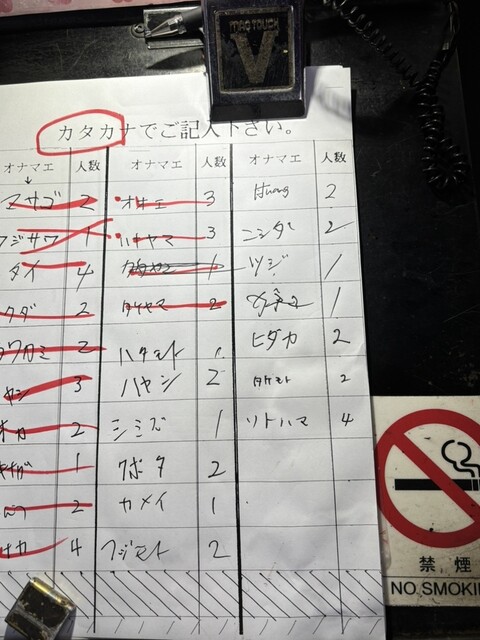 MAG TOUCH
V
カタカナでご記入下さい。
オナマエ 人数 オナマエ 人数 オナマエ 人数
マサゴ 2 オサエ 3 Huong 2
フジサワ 1 ハナヤマ 3 ニシダ 2
タイ 4 1 ツジ 1
クダ 2 タイヤマ 2 1
2 ハタモト 1 ヒダカ 2
ヤシ 3 ハヤシ 2 タケモト 2
2 シミズ 1 ソトハマ 4
1 クボタ 2
2 カメイ 1
4 フジモト 2
禁煙
NO SMOKI